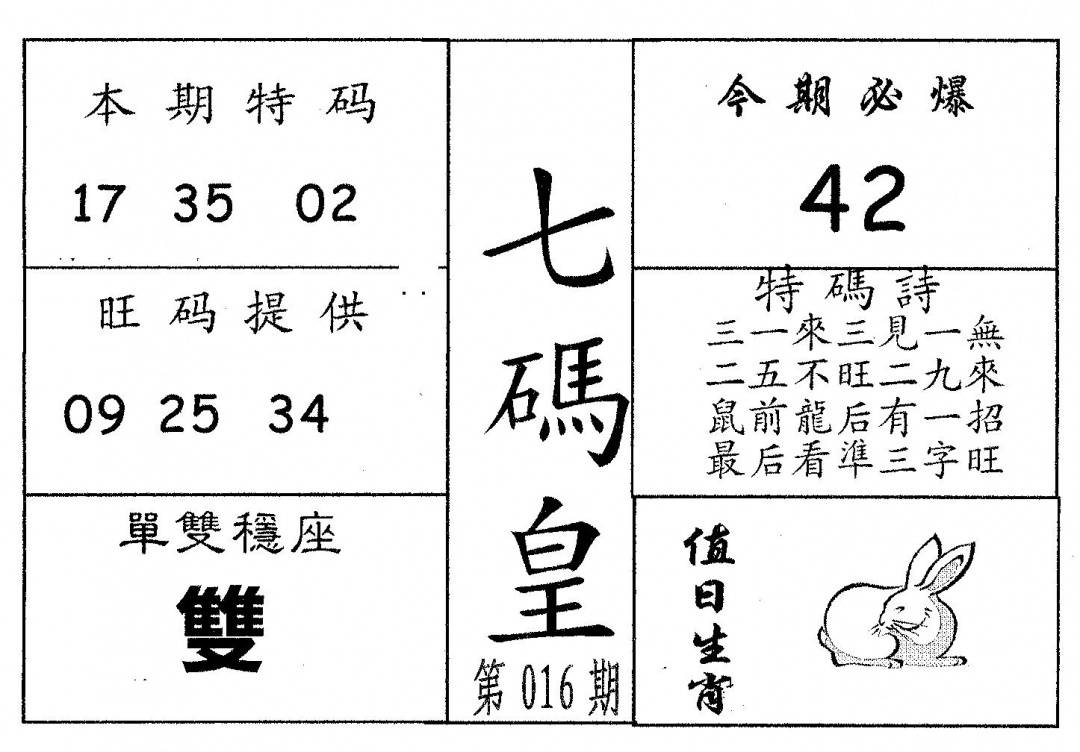 本期特码
17 35 02
旺码提供
09 25 34
單雙穩座
雙
七碼皇
第016期
今期必爆
42
特碼詩
三一來三見一無
二五不旺二九來
鼠前龍后有一招
最后看準三字旺
值日生肖